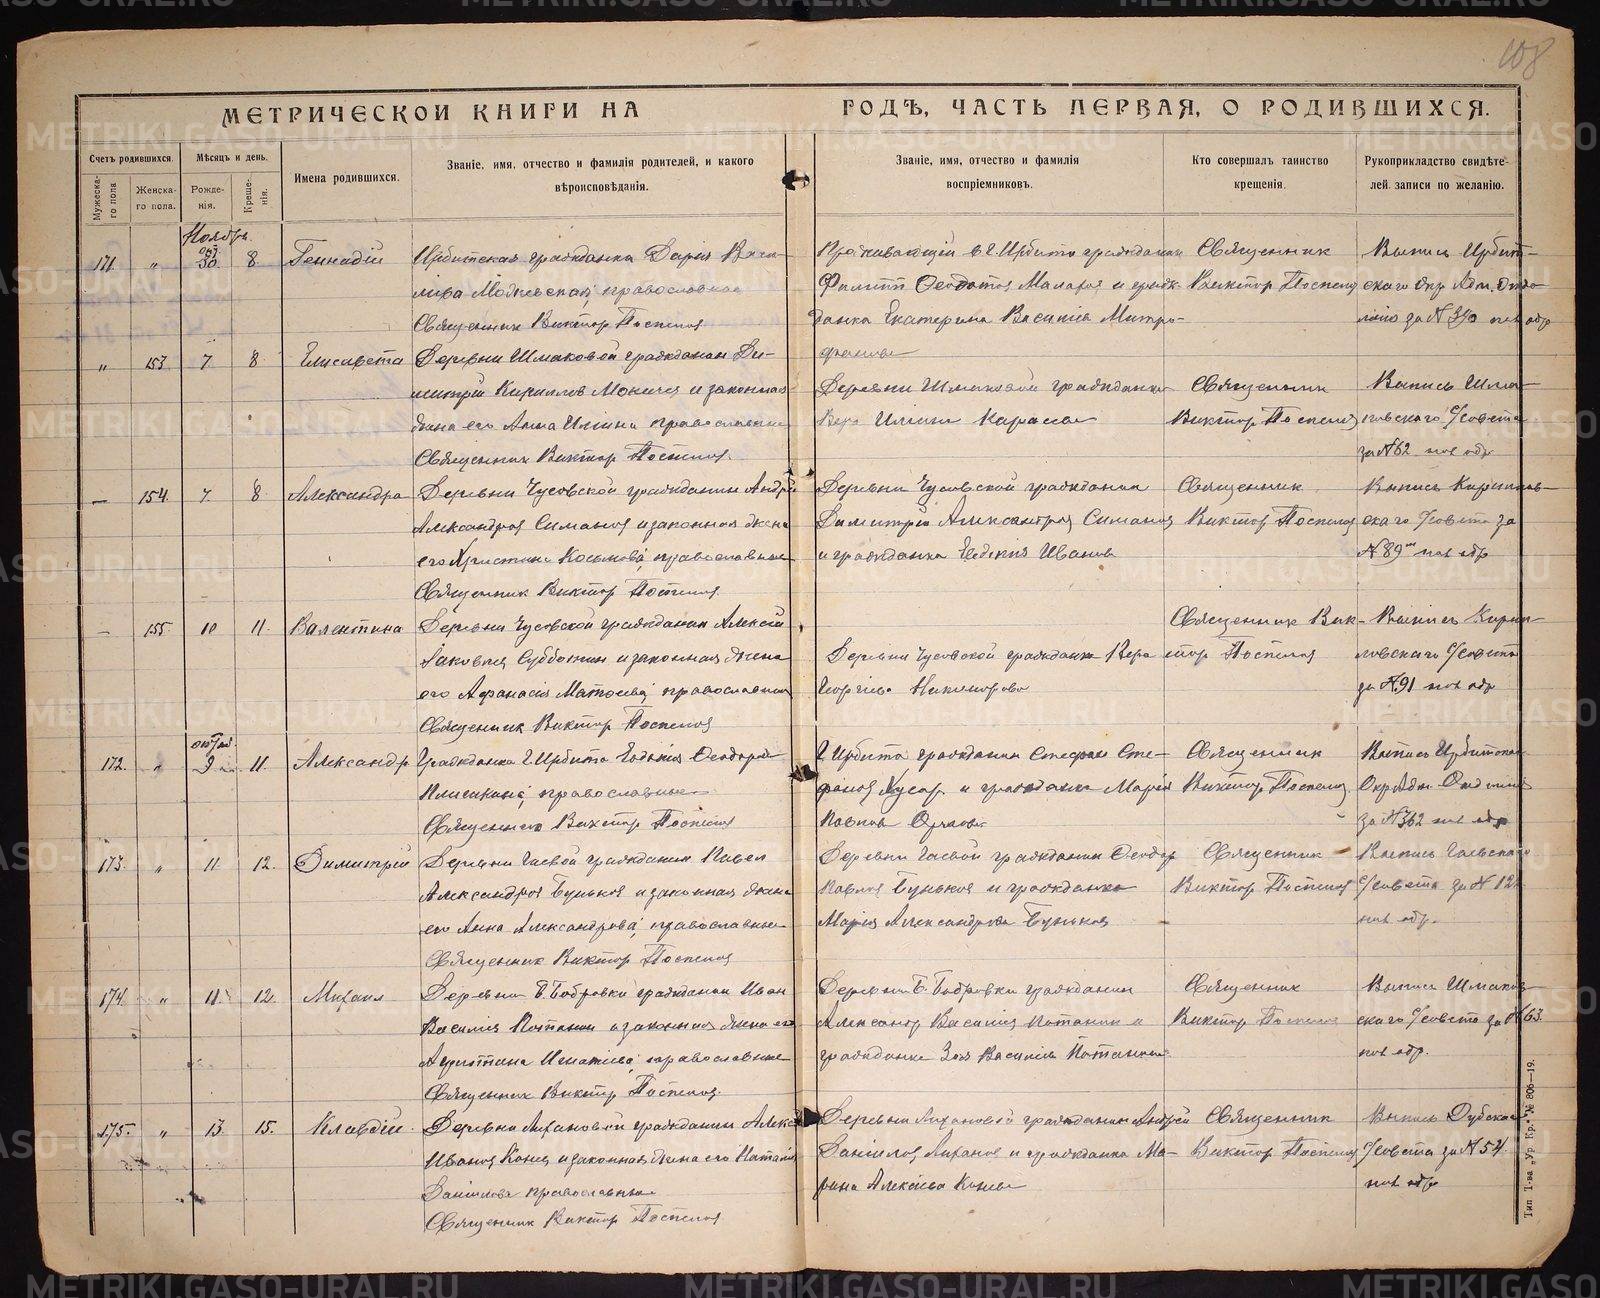 108
МЕТРИЧЕСКОЙ КНИГИ НА ГОДЪ, ЧАСТЬ ПЕРВАЯ, О РОДИВШИХСЯ.
Счетъ родившихся.
Мужеска-го пола
Женска-го пола.
Мѣсяцъ и день.
Рожде-нія.
Креще-нія.
Имена родившихся.
Званіе, имя, отчество и фамилія родителей, и какого
вѣроисповѣданія.
Званіе, имя, отчество и фамилія
воспріемниковъ.
Кто совершалъ таинство
крещенія.
Рукоприкладство свидѣте-
лей записи по желанію.
Ноябрь
171. " окт 30 8. Геннадій
Ирбитская гражданка Дарія Васи-
православная
Священникъ Виктор Поспелов
Проживающій в г. Ирбити гражданин
Филипп Феодотов Макаров и граж-
данка Екатерина Василіева Митро-
фанова
Священник
Виктор Поспелов
Выпись Ирбит-
скаго Окр Адм. Отде
" 153 7 8 Елисавета
Деревни Шмаковой гражданин Ди-
митрій Кириллов Мокин и законная
жена его Анна Ильина православные
Священник Виктор Поспелов.
Деревни Шмаковой гражданка
Вера Ильина Карасева
Священник
Виктор Поспелов
Выпись Шма-
ковскаго С/совета
за №62
— 154. 7. 8 Александра
Деревни Чусовской гражданин Андрей
Александров Симанов и законная жена
его Христина Косьмова, православные
Священник Виктор Поспелов
Деревни Чусовской гражданин
Димитрій Александров Симанов
и гражданка Евдокия Иванов
Священник
Виктор Поспелов
Выпись Кирилов-
скаго С/совета за
№ 89
— 155. 10 11. Валентина
Деревни Чусовской гражданин Алексій
Іаковлев Субботин и законная жена
его Афанасія Матфеева, православныя
Священник Виктор Поспелов
Деревни Чусовской гражданка Вера
Георгіева Никифорова
Священник Вик-
тор Поспелов
Выпись Кири-
ловскаго С/совета
за №.91
172. " 9 11. Александр
Гражданка г. Ирбита Евдокія Феодоров
православные
Священник Виктор Поспелов
Г. Ирбита гражданин Стефан Сте-
фанов и гражданка Марія
Павлов
Священник
Виктор Поспелов
Выпись Ирбитскаго
Окр Адм Отдела
за №362
173. " 11. 12. Димитрій
Деревни Гаевой гражданин Павел
Александров Буньков и законная жена
его Анна Александрова, православные
Священник Виктор Поспелов
Деревни Гаевой гражданин Феодор
Павлов Буньков и гражданка
Марія Александрова Бунькова
Священник
Виктор Поспелов
Выпись Гаевскаго
С/совета за №
174. " 11 12. Михаил
Деревни Б. Бобровки гражданин Иван
Василіев Потанин и законная жена его
Христина Игнатіева, православные
Священник Виктор Поспелов.
Деревни Б. Бобровки гражданин
Александр Василіев Потанин и
гражданка Зоя Василіева Потанина
Священник
Виктор Поспелов
Выпись Шмаков-
скаго С/совета за №63.
175. " 13 15. Клавдій.
Деревни Лихановой гражданин Алексій
Иванов Конев и законная жена его Наталія
Даніилова православные
Священник Виктор Поспелов
Деревни Лихановой гражданин Андрей
Даніилов Лиханов и гражданка Ма-
рина Алексіева Конева
Священник
Виктор Поспелов
Выпись Дубскаго
С/совета за № 54.
Тип. Т-ва „Ур. Кр." № 806—19.
METRIKI.GASO-URAL.RU